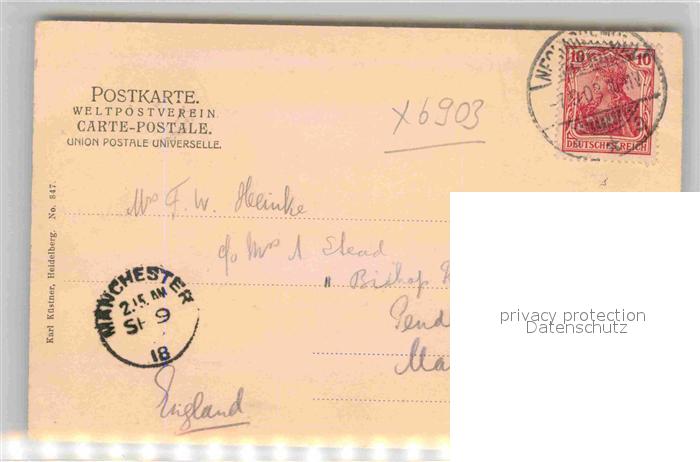 POSTKARTE.
WELTPOSTVEREIN.
CARTE-POSTALE.
UNION POSTALE UNIVERSELLE.
x6903
10 10
DEUTSCHES REICH
Karl Küstner, Heidelberg. No. 847.
Mrs F. W. Heinke
c/o Mrs A Stead
" Bishop
Pend
Ma
England
MANCHESTER
2.15 AM
SP 9
18
privacy protection
Datenschutz